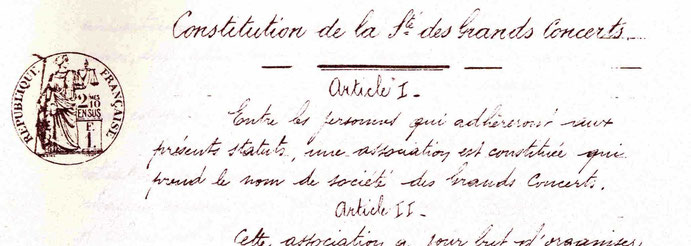 Constitution de la Sté des Grands Concerts
RÉPUBLIQUE FRANÇAISE
2/10
EN SUS
F.
1
Article I
Entre les personnes qui adhèreront aux
présents statuts, une association est constituée qui
prend le nom de société des Grands Concerts.
Article II
Cette association a pour but d'organiser